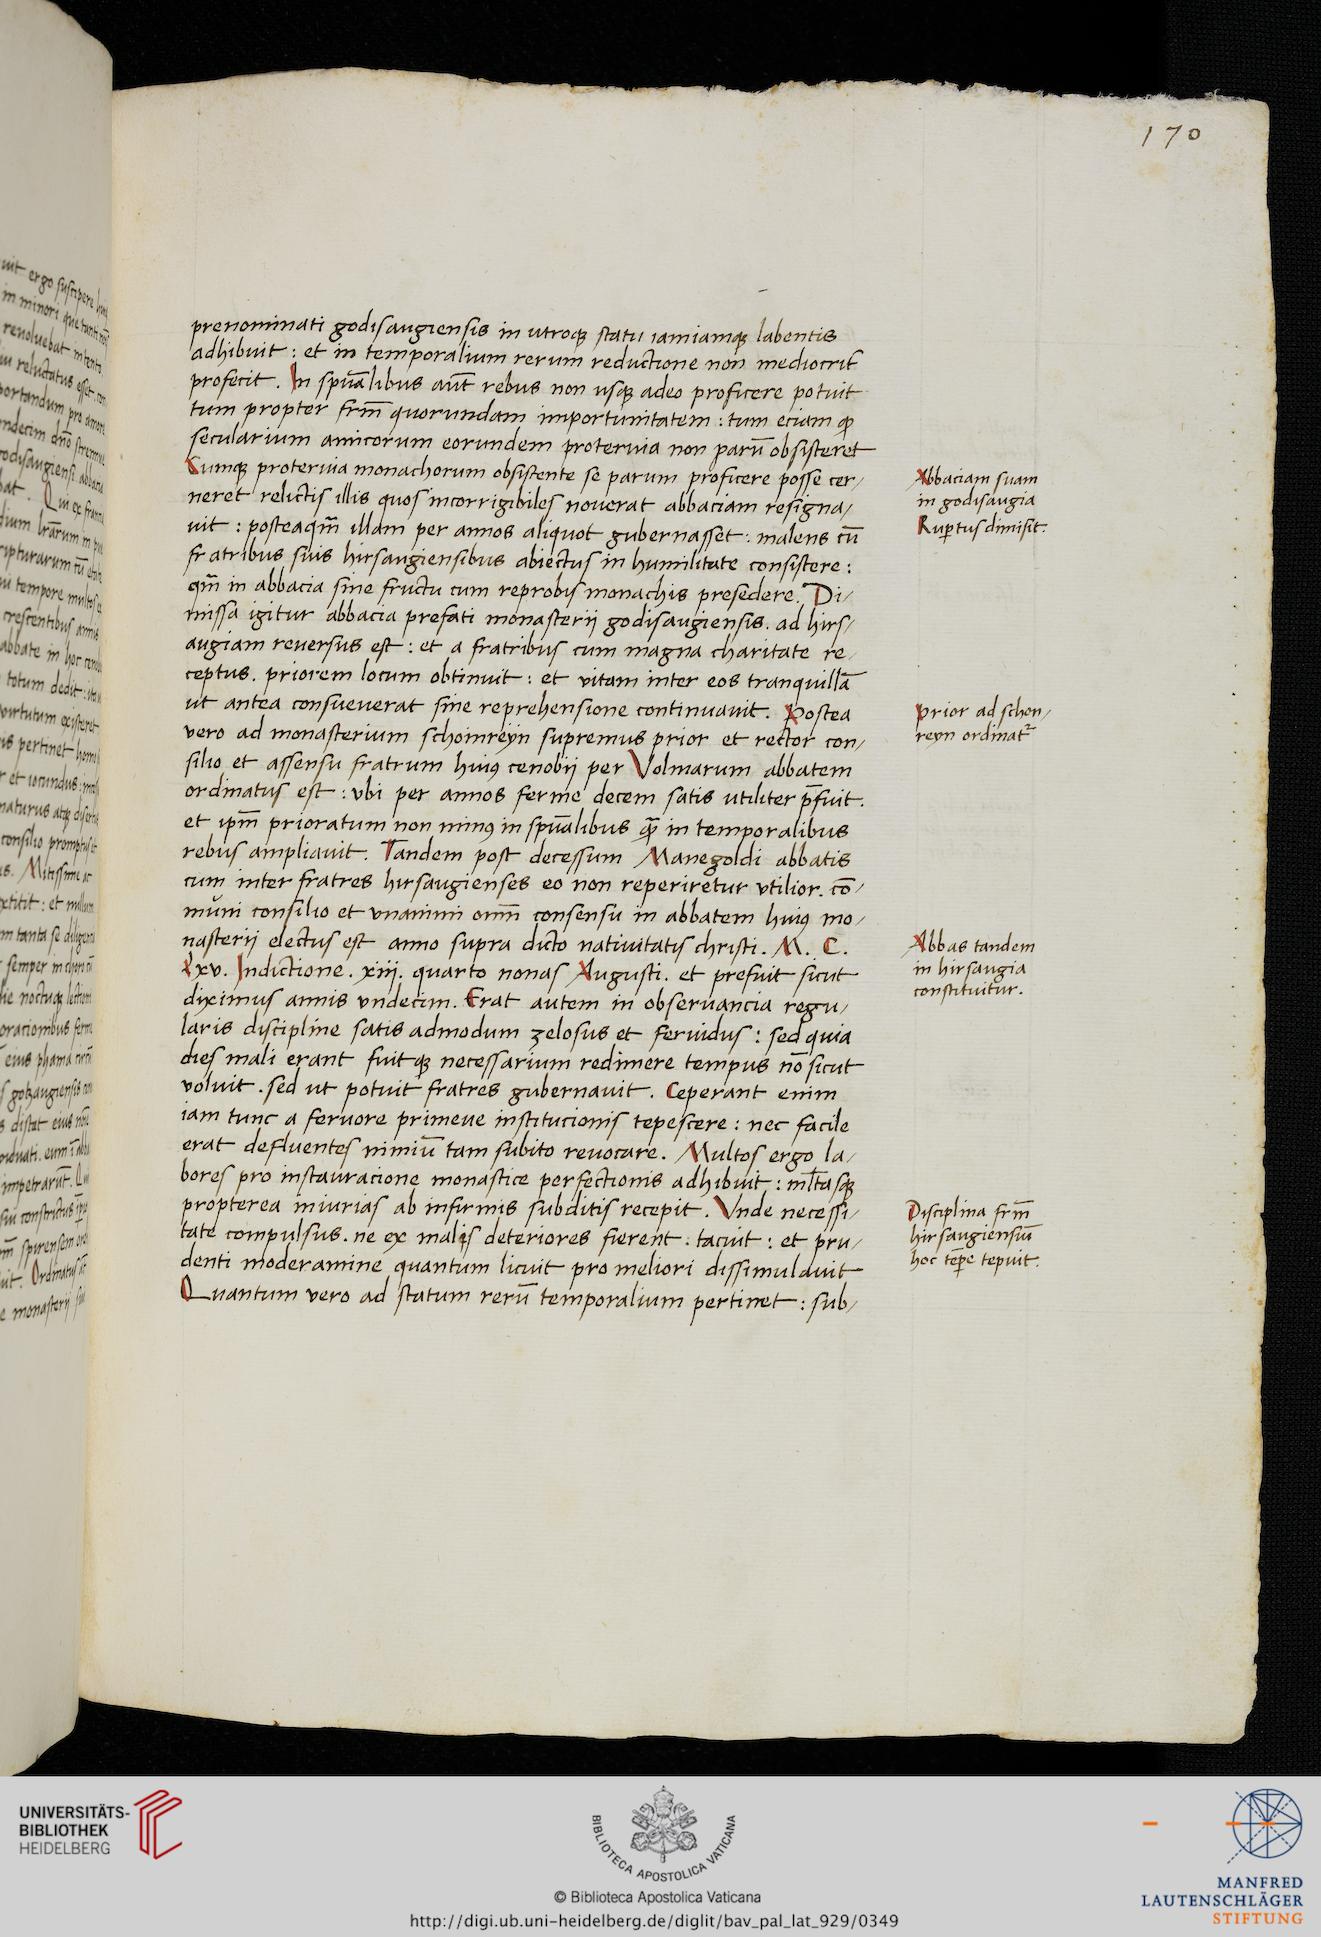 170
prenominati godisaugiensis in utroqꝫ statu iamiamqꝫ labentis
adhibuit : et in temporalium rerum reductione non mediocrit̃
profecit . In spũalibus aũt rebus non usqꝫ adeo proficere potuit
tum propter frm̃ quorundam importunitatem : tum eciam ꝙ
secularium amicorum eorundem proteruia non parũ obsisteret
Cumqꝫ proteruia monachorum obsistente se parum proficere posse cer/
neret relictis illis quos incorrigibiles nouerat abbaciam resigna/
uit : posteaqm̃ illam per annos aliquot gubernasset : malens cũ
fratribus suis hirsaugiensibus abiectus in humilitate consistere :
qm̃ in abbacia sine fructu cum reprobis monachis presedere. Di/
missa igitur abbacia prefati monasterij godisaugiensis. ad hirs/
augiam reuersus est : et a fratribus cum magna charitate re/
ceptus. priorem locum obtinuit : et vitam inter eos tranquillã
ut antea consueuerat sine reprehensione continuauit. Postea
vero ad monasterium schoinreyn supremus prior et rector con/
silio et assensu fratrum huiꝰ cenobij per Volmarum abbatem
ordinatus est : vbi per annos ferme decem satis utiliter p̃fuit.
et ipm̃ prioratum non minꝰ in spũalibus qꝫ̃ in temporalibus
rebus ampliauit. Tandem post decessum Manegoldi abbatis
cum inter fratres hirsaugienses eo non reperiretur vtilior. cõ/
muni consilio et vnanimi om̃ consensu in abbatem huiꝰ mo/
nasterij electus est anno supra dicto natiuitatis christi. M. C.
Lxv. Indictione. xiij. quarto nonas Augusti. et prefuit sicut
diximus annis vndecim. Erat autem in obseruancia regu/
laris discipline satis admodum zelosus et feruidus : sed quia
dies mali erant fuitqꝫ necessarium redimere tempus nõ sicut
voluit . sed ut potuit fratres gubernauit . Ceperant enim
iam tunc a feruore primeue institucionis tepescere : nec facile
erat defluentes nimiũ tam subito reuocare. Multos ergo la/
bores pro instauracione monastice perfectionis adhibuit : ml̃tasqꝫ
propterea iniurias ab infirmis subditis recepit . Vnde necessi/
tate compulsus. ne ex malis deteriores fierent . tacuit : et pru/
denti moderamine quantum licuit pro meliori dissimulauit
Quantum vero ad statum rerũ temporalium pertinet : sub/
Abbaciam suam
in godisaugia
Ruꝑtus dimisit.
Prior ad schon/
reyn ordinat̃
Abbas tandem
in hirsaugia
constituitur.
Disciplina frm̃
hirsaugiensiũ
hoc tẽpe tepuit.
UNIVERSITÄTS-
BIBLIOTHEK
HEIDELBERG
BIBLIOTECA APOSTOLICA VATICANA
© Biblioteca Apostolica Vaticana
http://digi.ub.uni-heidelberg.de/diglit/bav_pal_lat_929/0349
MANFRED
LAUTENSCHLÄGER
STIFTUNG